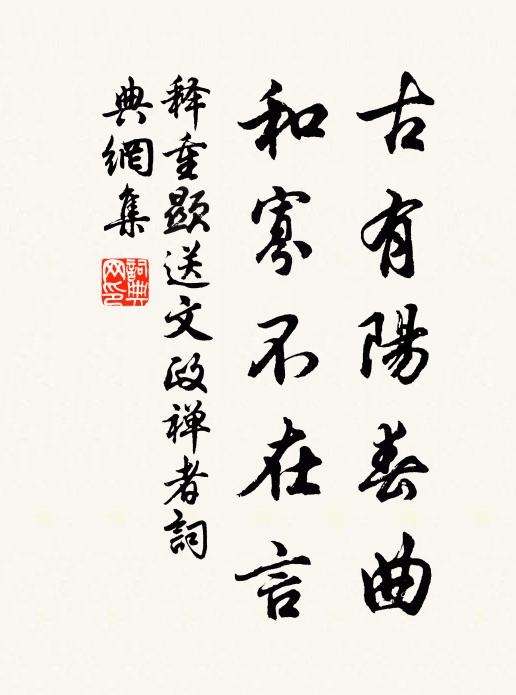 古有陽春曲
和寡不在言
释重顯送文政禅者詞
典網集
詞典
网印